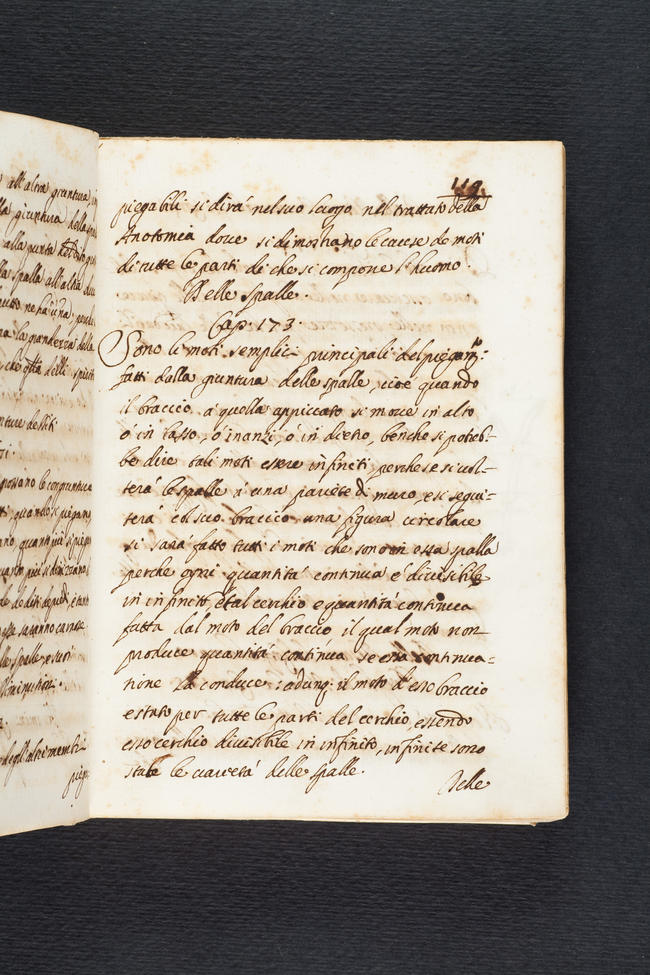 all'altra giuntura,
la giuntura della
alla giunta
lla spalla all'altra
utto ne ha una, perche
na la grandezza della
che
nture de diti
possano le congiunture
quando si piegano
ano, quanto piu si piega
piu si dirizzano
lle spalle, e suoi
diminution.
degli altri membri
pieg
119.
piegabili si dirá nel suo luogo nel trattato della
Anotomia doue si dimostrano le cause de moti
di tutte le parti di che si compone l'huomo.
Delle spalle.
Cap. 173.
Sono li moti semplici principali del piegam.to
fatti dalla giuntura delle spalle, cioè quando
il braccio á quella appiccato si moue in alto
ó in basso, ó inanzi, ó in dietro, benche si potreb-
be dire tali moti essere infiniti perche se si uol-
terá le spalle á una pariete di muro, e si segui-
terá col suo braccio una figura circolare
si sará fatto tutti i moti che sono in essa spalla
perche ogni quantitá continua é diuisibile
in infinito, et al cerchio e quantitá continua
fatta dal moto del braccio il qual moto non
produce quantitá continua se essa continua-
tione la conduce: adunq: il moto d'esso braccio
e stato per tutte le parti del cerchio, essendo
esso cerchio diuisibile in infinito, infinite sono
state le uarietá delle spalle.
Delle